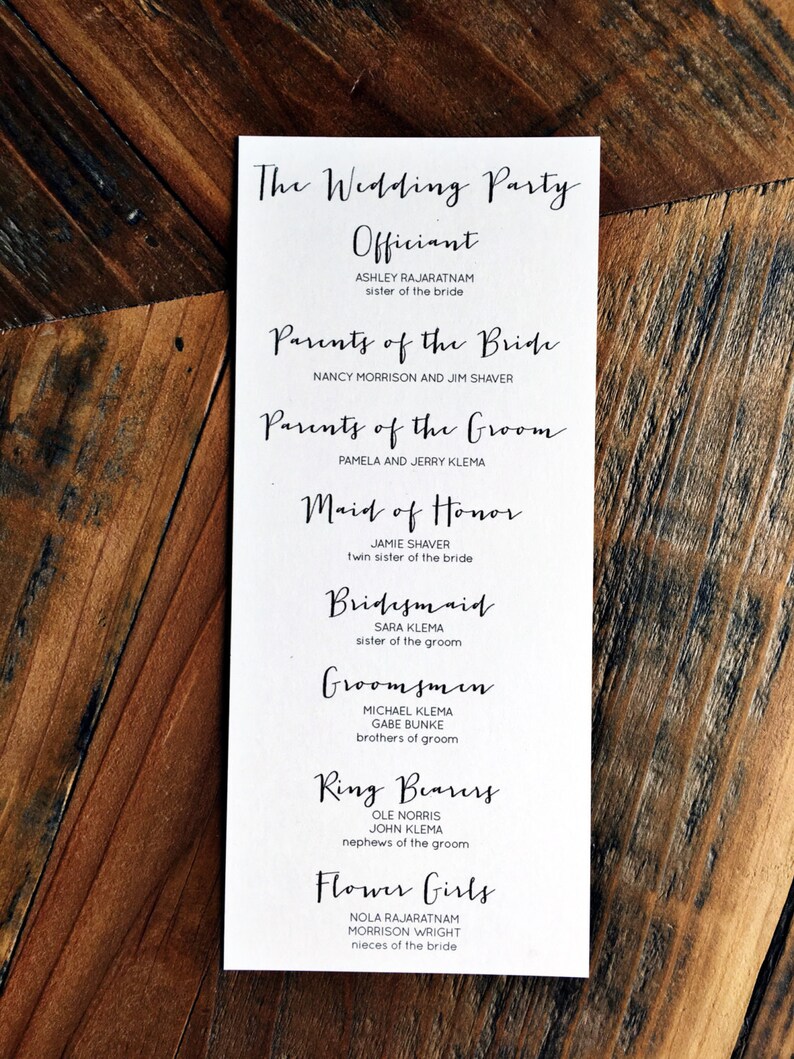 The Wedding Party
Officiant
ASHLEY RAJARATNAM
sister of the bride
Parents of the Bride
NANCY MORRISON AND JIM SHAVER
Parents of the Groom
PAMELA AND JERRY KLEMA
Maid of Honor
JAMIE SHAVER
twin sister of the bride
Bridesmaid
SARA KLEMA
sister of the groom
Groomsmen
MICHAEL KLEMA
GABE BUNKE
brothers of groom
Ring Bearers
OLE NORRIS
JOHN KLEMA
nephews of the groom
Flower Girls
NOLA RAJARATNAM
MORRISON WRIGHT
nieces of the bride